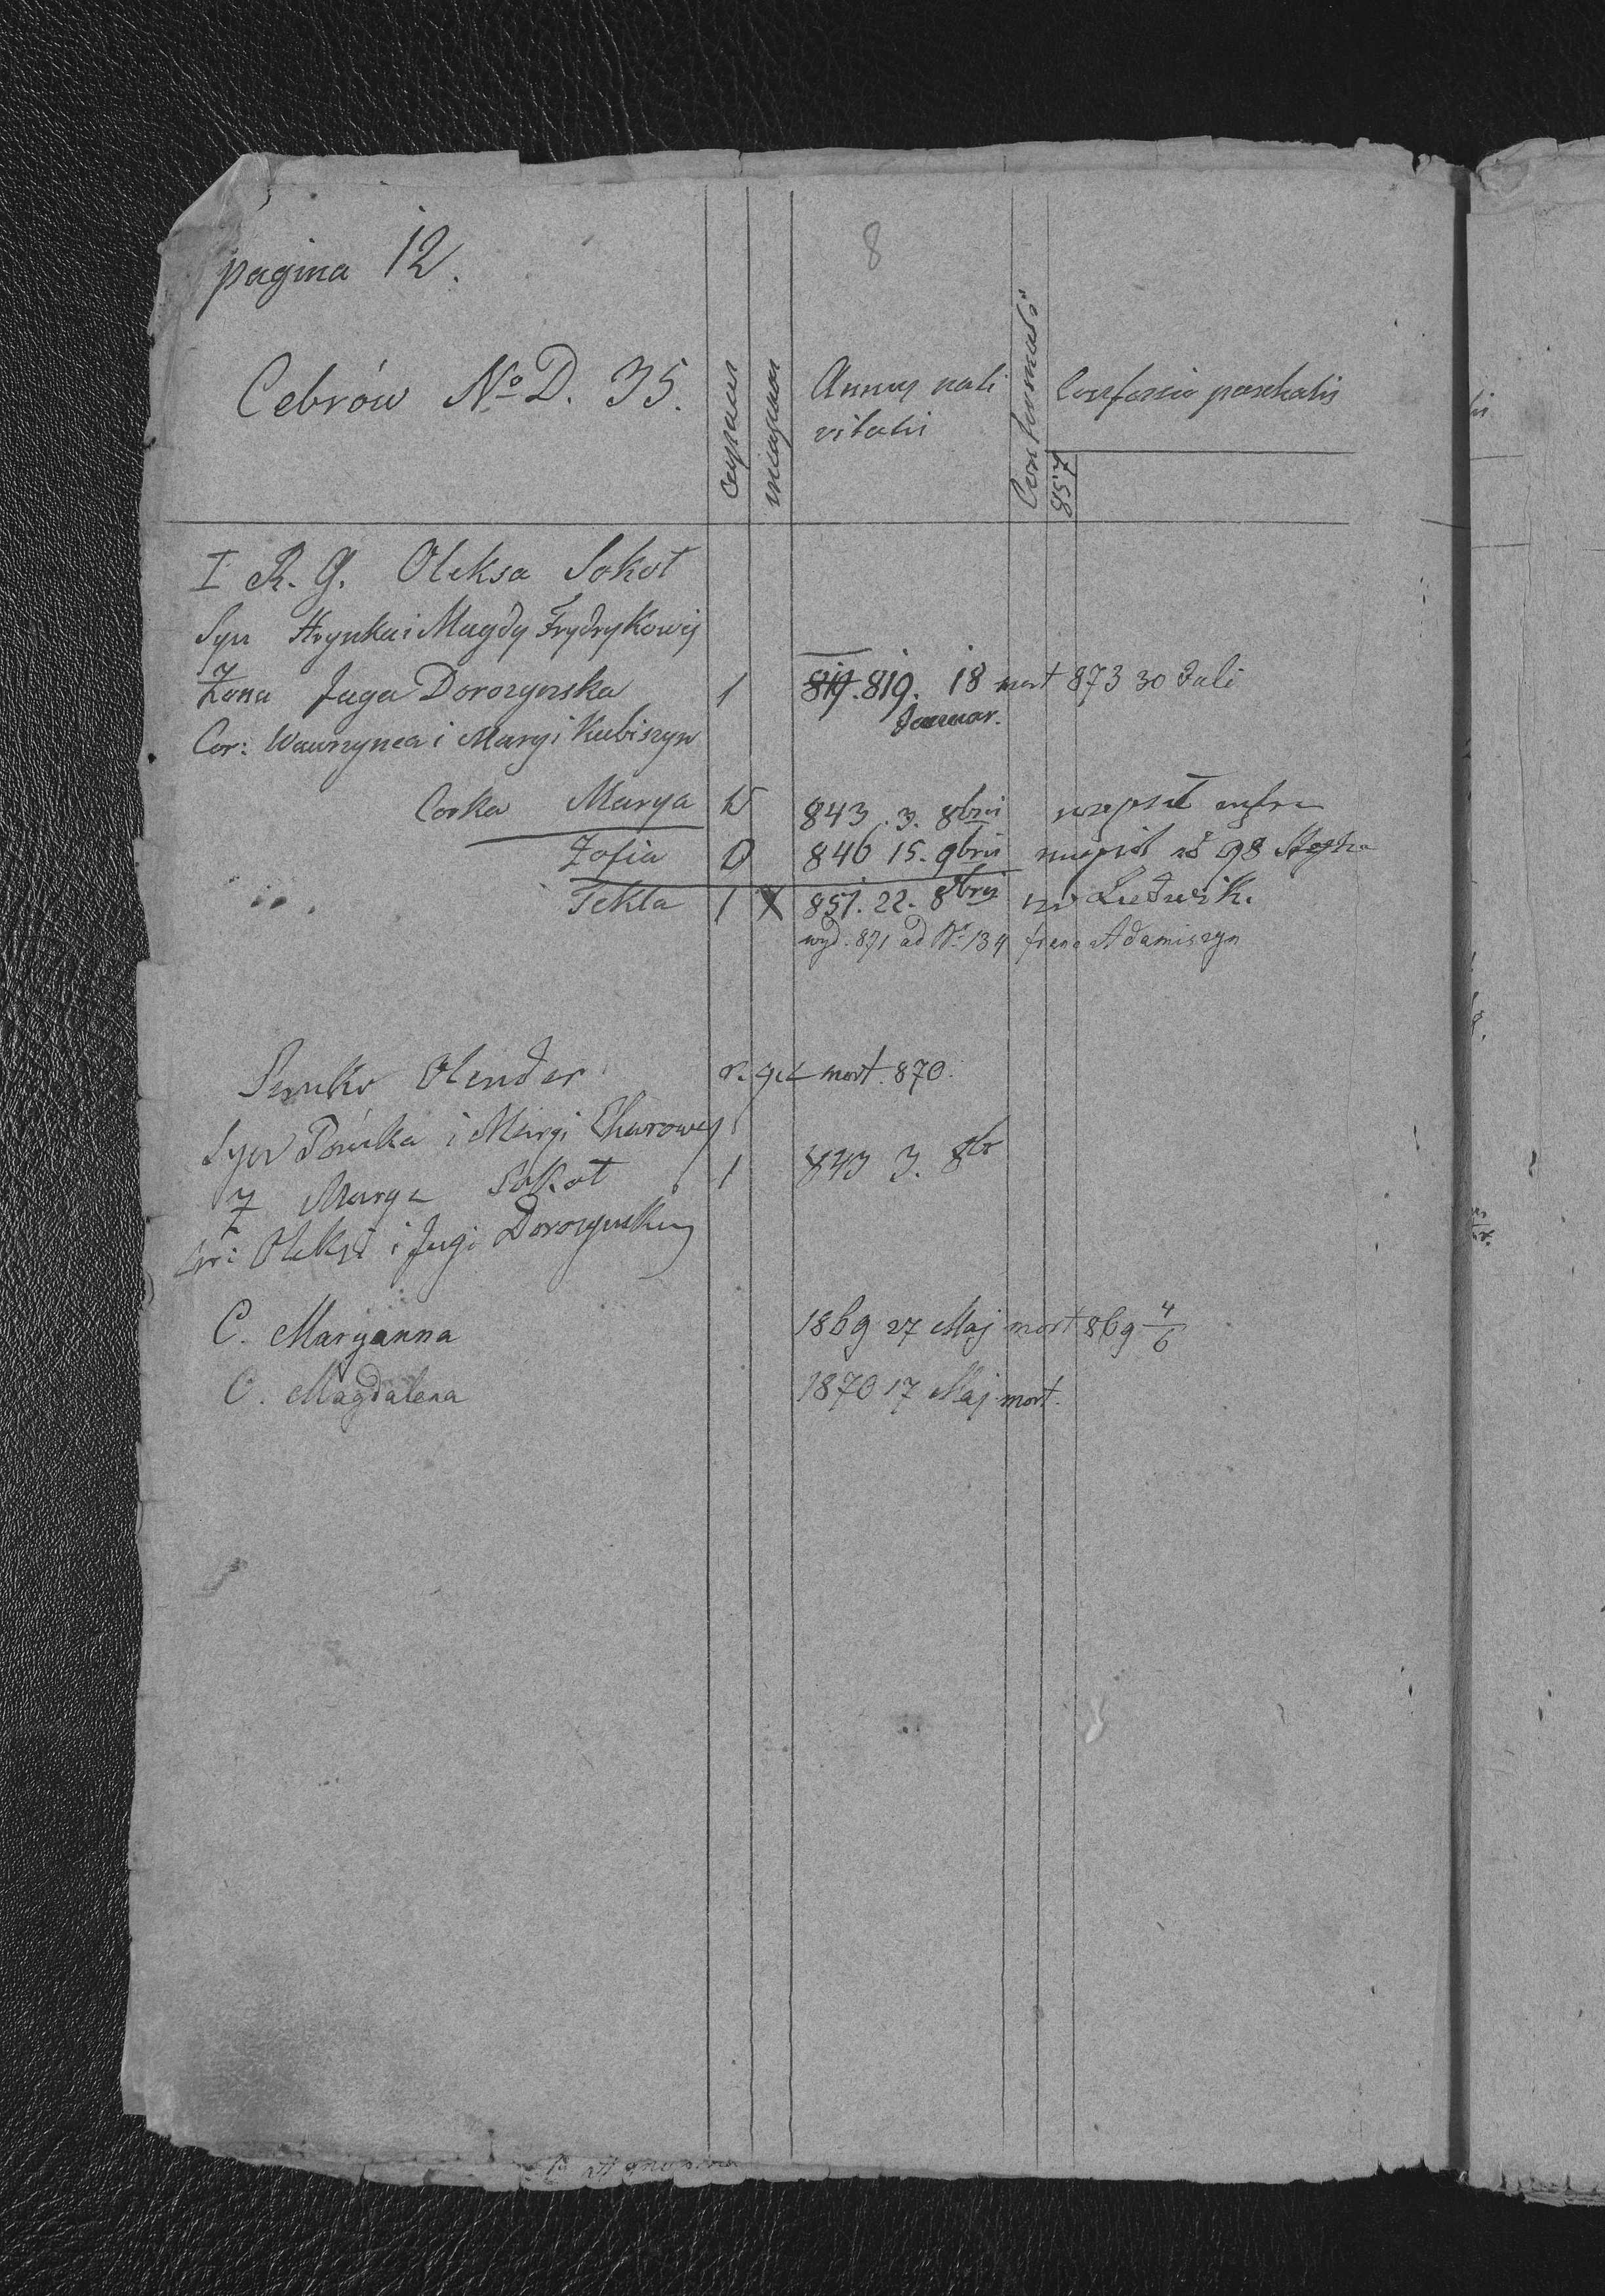 8
pagina 12.
Cebrów No D. 35.
capax
incapax
Annus nati
vitalis
Confirmatis
Confessio paschalis
858
I R. G. Oleksa Sokoł
Syn Hrynka i Magdy Frydrykowij
Żona Jaga Dorozynska 1 819. 819. 18 mort 873 30 Juli
Januar.
Cor: Wawrzynca i Maryi Kubiszyn
Corka Marya 843. 3. 8bris infra
Zofia 846 15. 9bris ad 98
Tekla 1 X 851. 22. 8bris Ludwik.
wyd. 871 ad No 134 Adamiszyn
Semko Olender mort. 870.
Syn i Maryi
Ż Marya Sokoł 1 843 3. 8br
Cor: Oleksi i Jugi Dorozynskiej
C. Maryanna 1869 27 Maj mort 869 4/6
C. Magdalena 1870 17 Maj mort.